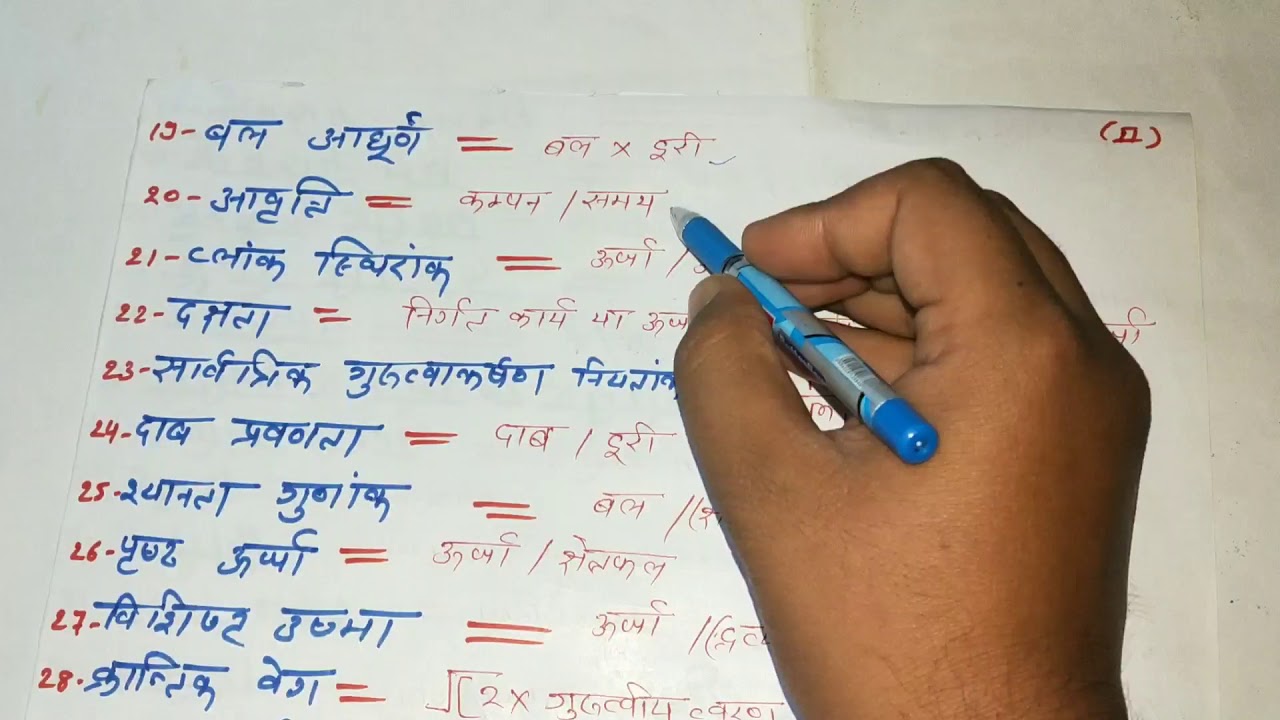 (II)
19- बल आघूर्ण = बल x दूरी
20- आवृत्ति = कम्पन / समय
21- प्लांक स्थिरांक = ऊर्जा /
22- दक्षता = निर्गत कार्य या
23- सार्वत्रिक गुरुत्वाकर्षण नियतांक
24- दाब प्रवणता = दाब / दूरी
25- श्यानता गुणांक = बल /(
26- पृष्ठ ऊर्जा = ऊर्जा / क्षेत्रफल
27- विशिष्ट उष्मा = ऊर्जा /(
28- क्रान्तिक वेग = √[2x गुरुत्वीय त्वरण